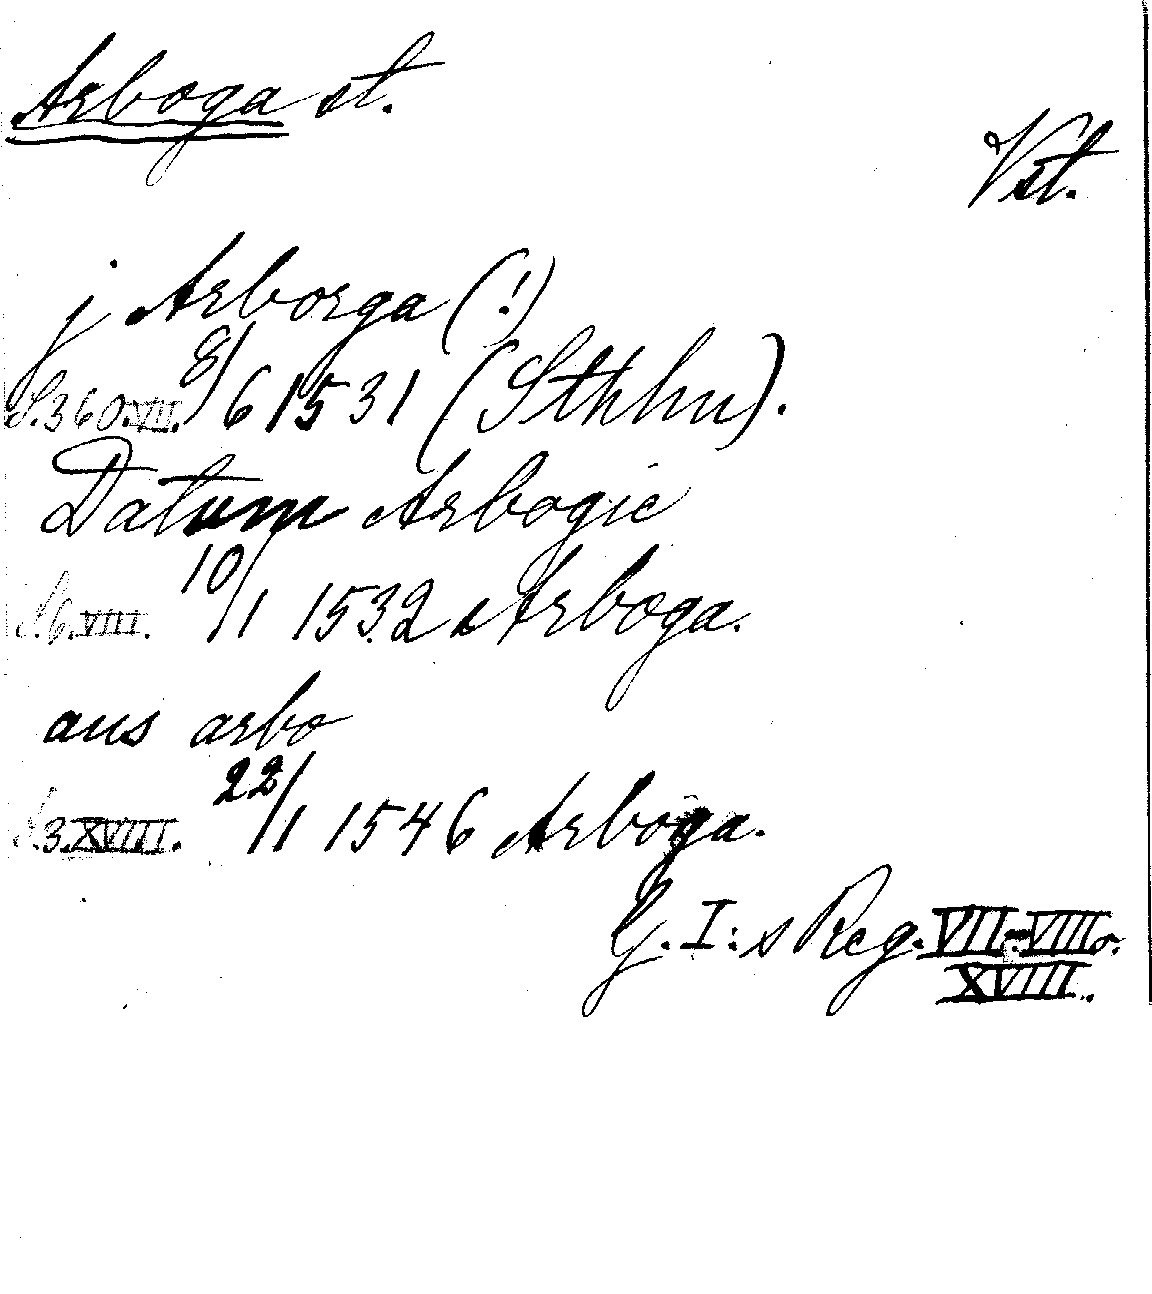 Arboga st.
Vst.
j Arborga (!)
S. 360. VII. 8/6 1531 (Sthhu).
Datum Arbogie
S. 6. VIII. 10/1 1532 Arboga.
aus arbo
S. 3. XVIII. 22/1 1546 Arboga.
G. I:s Reg. VII-VIII o.
XVIII.